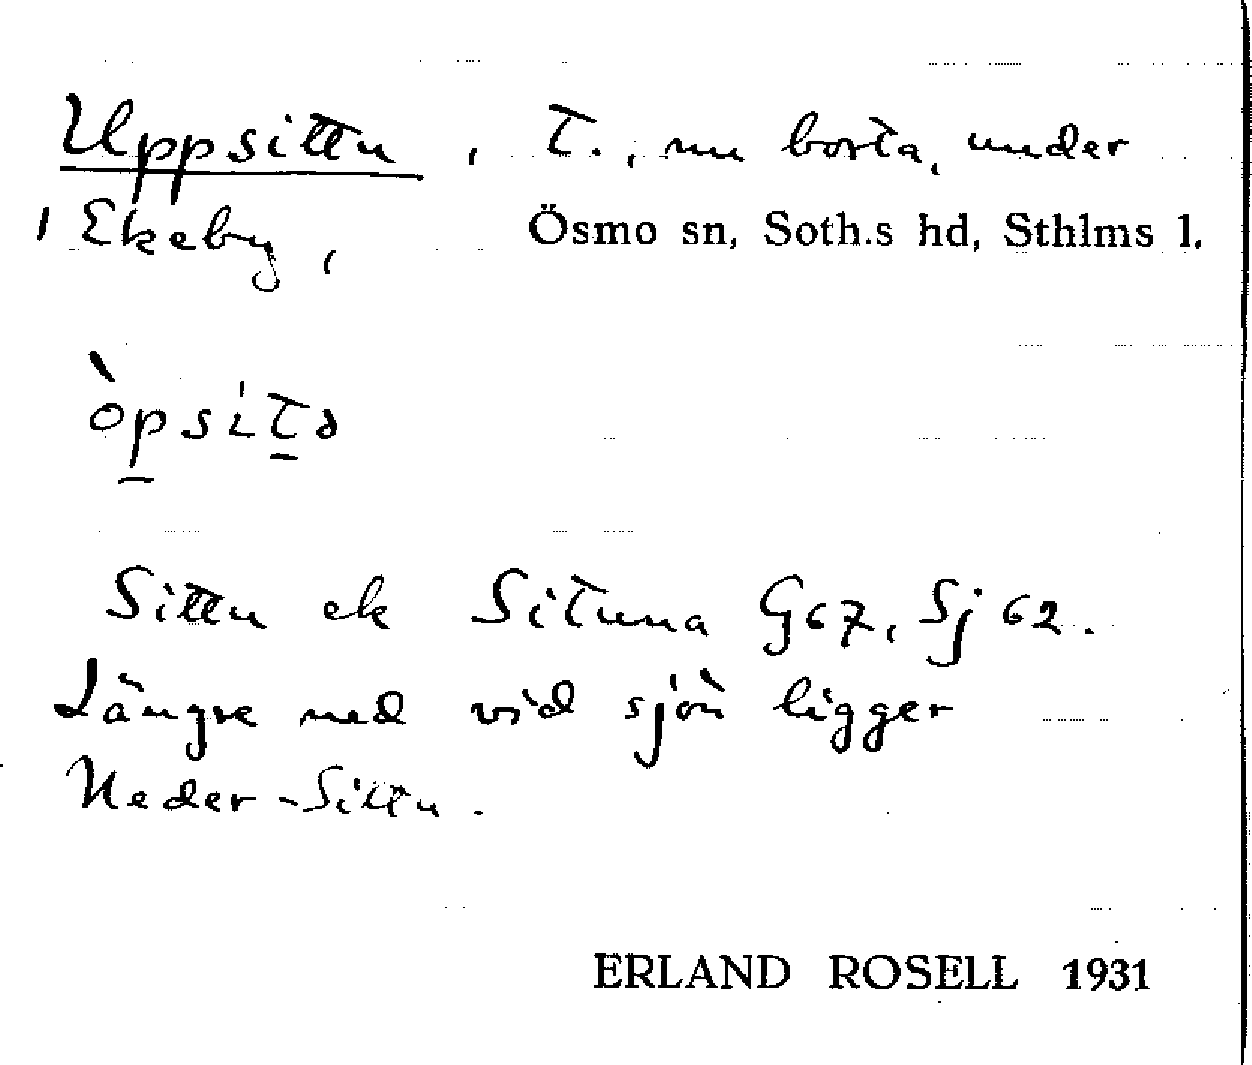 Uppsittu, T., nu borta, under
Ekeby, Ösmo sn, Soth.s hd, Sthlms l.
òpsìtə
Sittu ek Situna G67, Sj 62.
Längre ned vid sjön ligger
Neder-Sittu.
ERLAND ROSELL 1931